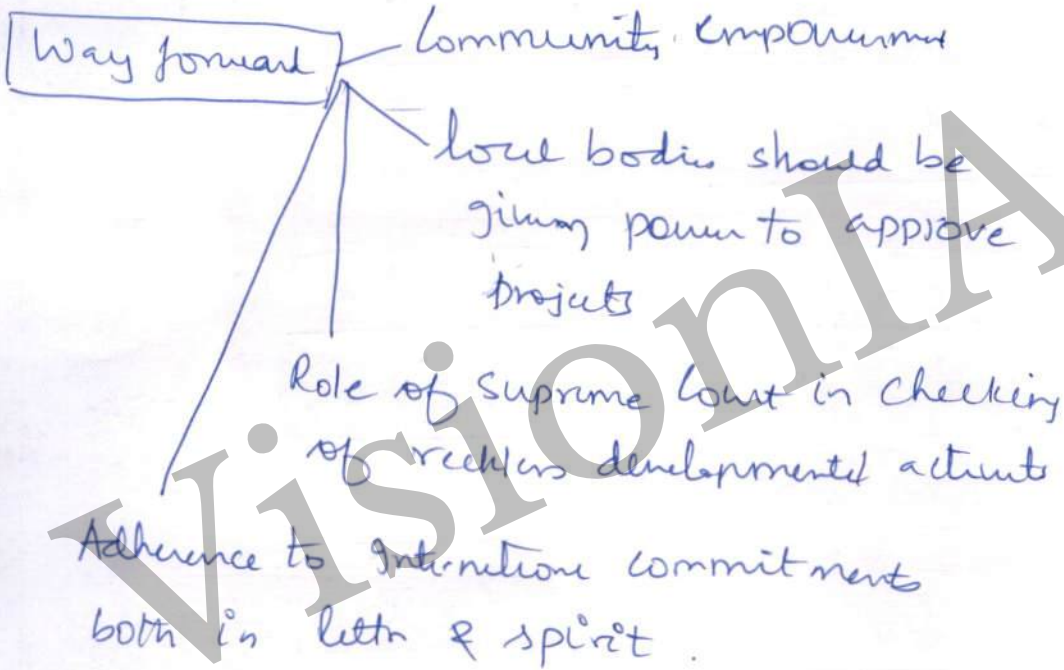 Way forward
Community empowerment
local bodies should be
given power to approve
projects
Role of Supreme Court in checking
of reckless developmental activits
Adherence to Internetione commitments
both in lettr & spirit.
VisionIA